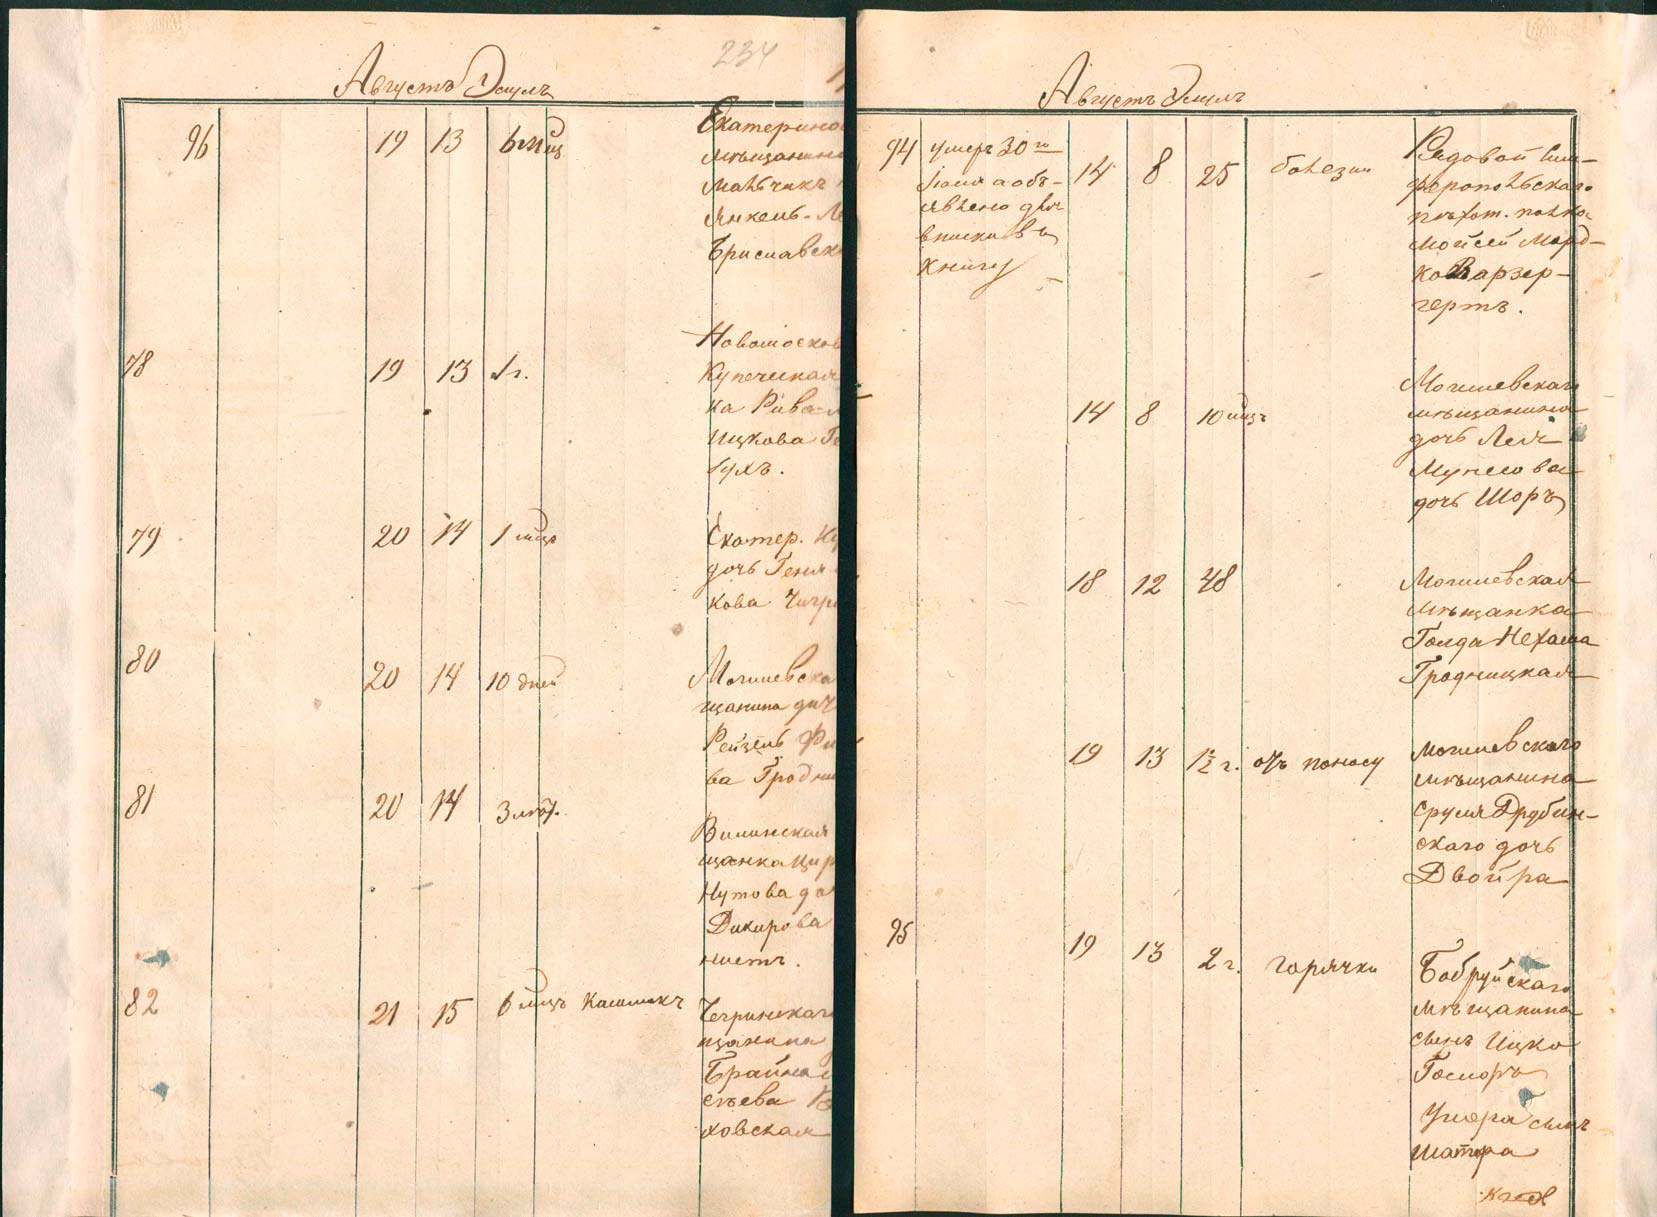 234
Августъ Эмулъ
96 19 13 6 мц Екатерино
мѣщанина
мальчикъ
Янкель-Ле
Бриславск
78 19 13 1 г. Новомосков
Купеческая
ка Рива-
Ицкова Ге
духъ.
79 20 14 1 мцъ Екатер. Ку
дочь Геня
кова Чигри
80 20 14 10 дней Могилевска
щанина доч
Рейзель Фи
ва Гродни
81 20 14 3 лѣт. Виленская
щанка Цир
Нутова до
Дикирова
нистъ.
82 21 15 6 мцъ Кашлюкъ Чегринскаго
щанина
Брайна
сѣева
ховская
Августъ Эмулъ
94 умеръ 30го
Іюля а объ-
явлено для
вписки въ
книгу
14 8 25 болезни Рядовой Сим-
ферапольскаго
пѣхот. полка
Мойсей Морд-
ко Варзер-
гертъ.
14 8 10 мцъ Могилевскаго
мѣщанина
дочь Лея
дочь Шоръ
18 12 48 Могилевская
мѣщанка
Голда Нехама
Гродницкая
19 13 1½ г. отъ поносу Могилевскаго
мѣщанина
Сруля Друбин-
скаго дочь
Двойра
95 19 13 2 г. горячки Бобруйскаго
мѣщанина
сынъ Ицко
сынъ